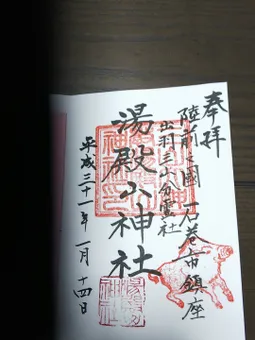 奉拝
陸前之國 石巻市鎮座
出羽三山分霊社
湯殿山神社
平成三十一年一月十四日